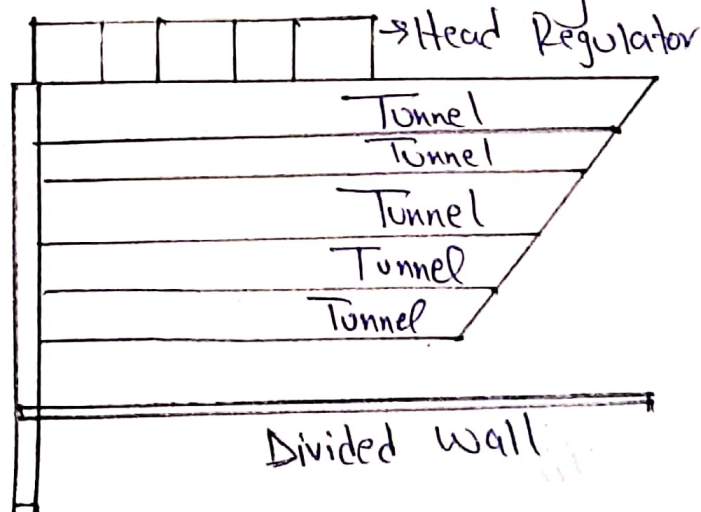 Head Regulator
Tunnel
Tunnel
Tunnel
Tunnel
Tunnel
Divided Wall